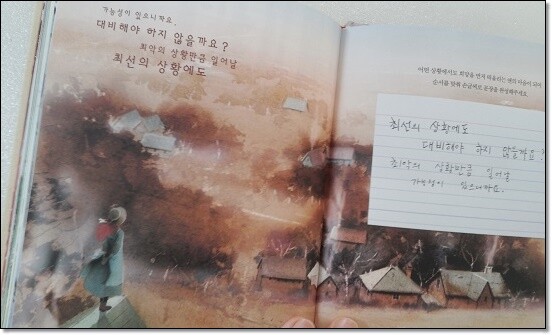 가능성이 있으니까요.
대비해야 하지 않을까요?
최악의 상황만큼 일어날
최선의 상황에도
어떤 상황에서도 희망을 먼저 떠올리는 앤의 마음이 되어
순서를 맞춰 손글씨로 문장을 완성해주세요.
최선의 상황에도
대비해야 하지 않을까요?
최악의 상황만큼 일어날
가능성이 있으니까요.